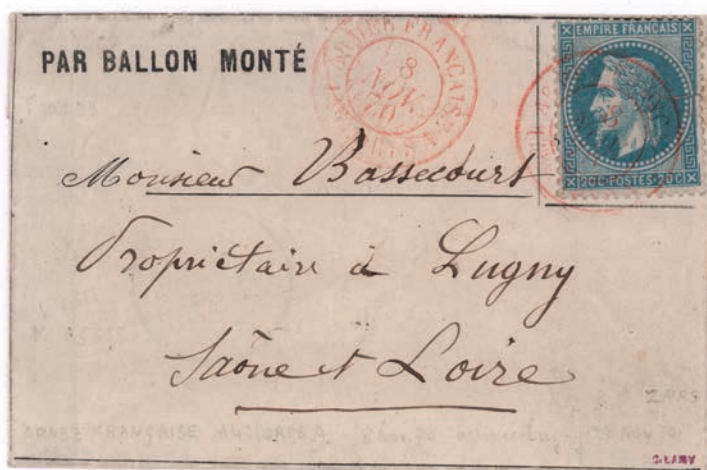 PAR BALLON MONTÉ
8
NOV
70
EMPIRE FRANÇAIS
20C·POSTES·20C
Monsieur Bassecourt
Propriétaire à Lugny
Saône et Loire